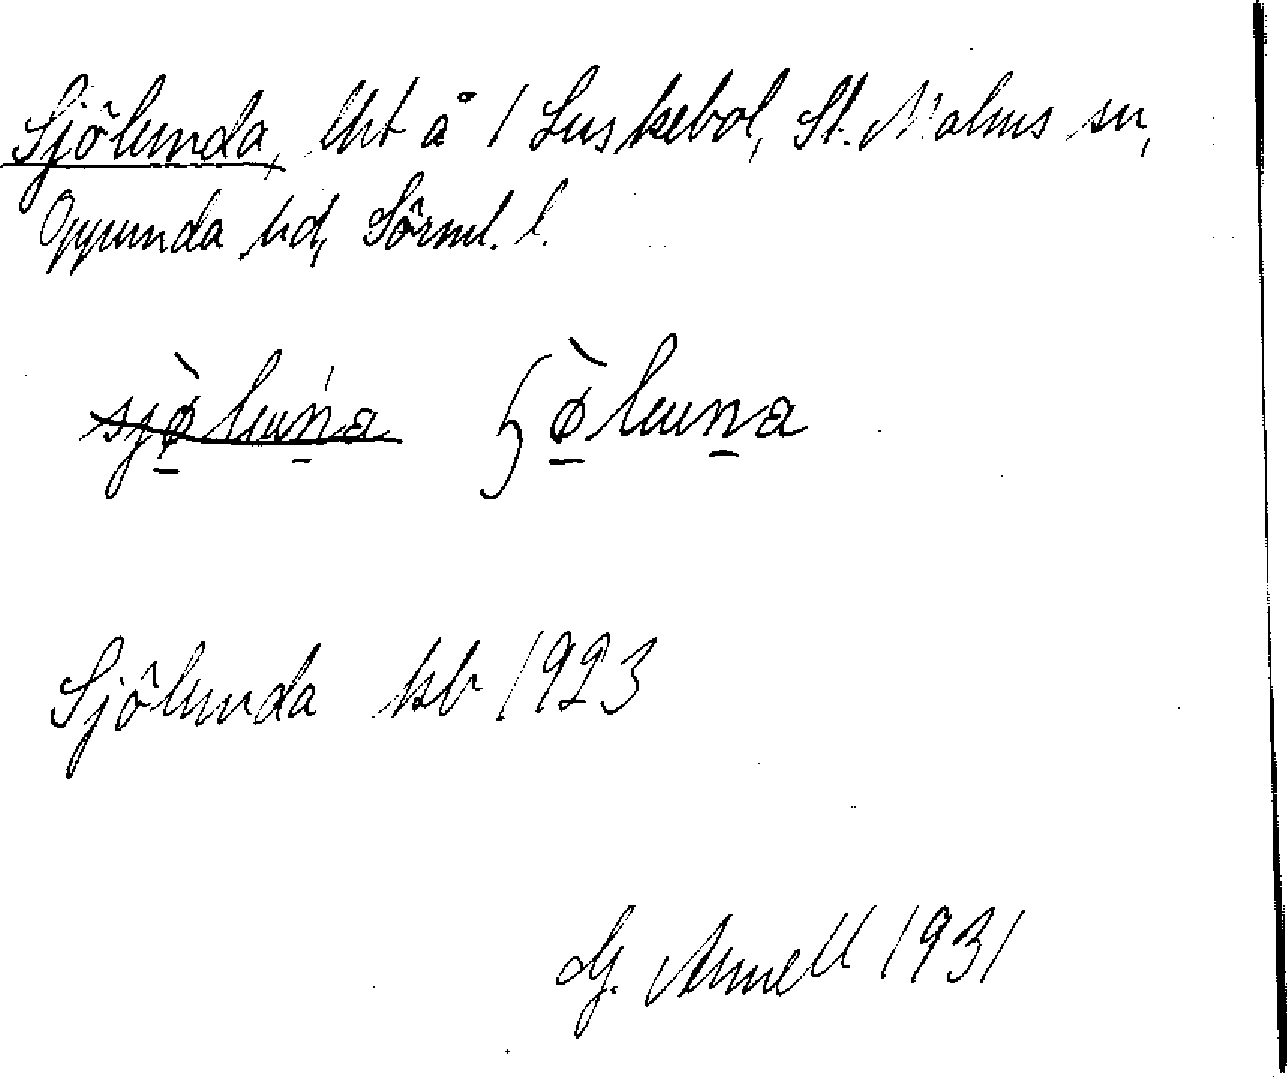 Sjölunda, lht å 1 Luskebol, St. Malms sn,
Oppunda hd, Sörml. l.
Sjölunda kb 1923
G. Arnell 1931